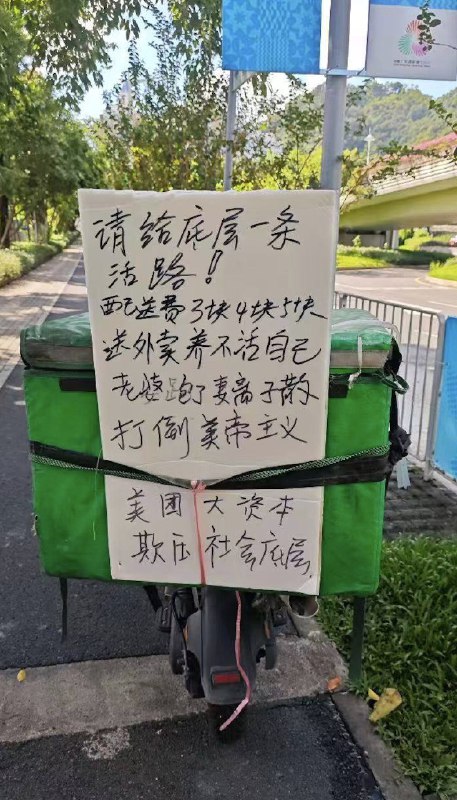 请给底层一条
活路!
配送费3块4块5块
送外卖养不活自己
老婆跑了妻离子散
打倒美帝主义
美团大资本
欺压社会底层